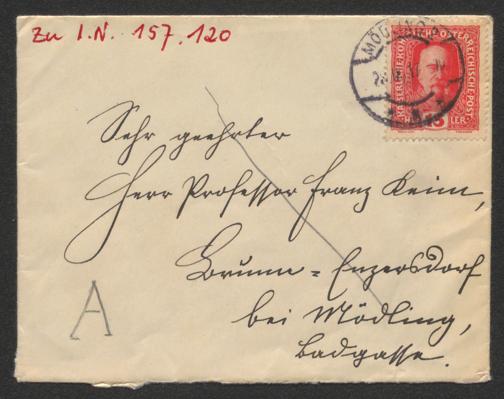 Zu I.N. 157.120
MÖDLING
KAISERLICHE KÖNIGLICHE ÖSTERREICHISCHE POST
15
HELLER
Sehr geehrter
Herr Professor Franz Keim,
Brunn = Enzersdorf
bei Mödling,
Badgasse.
A